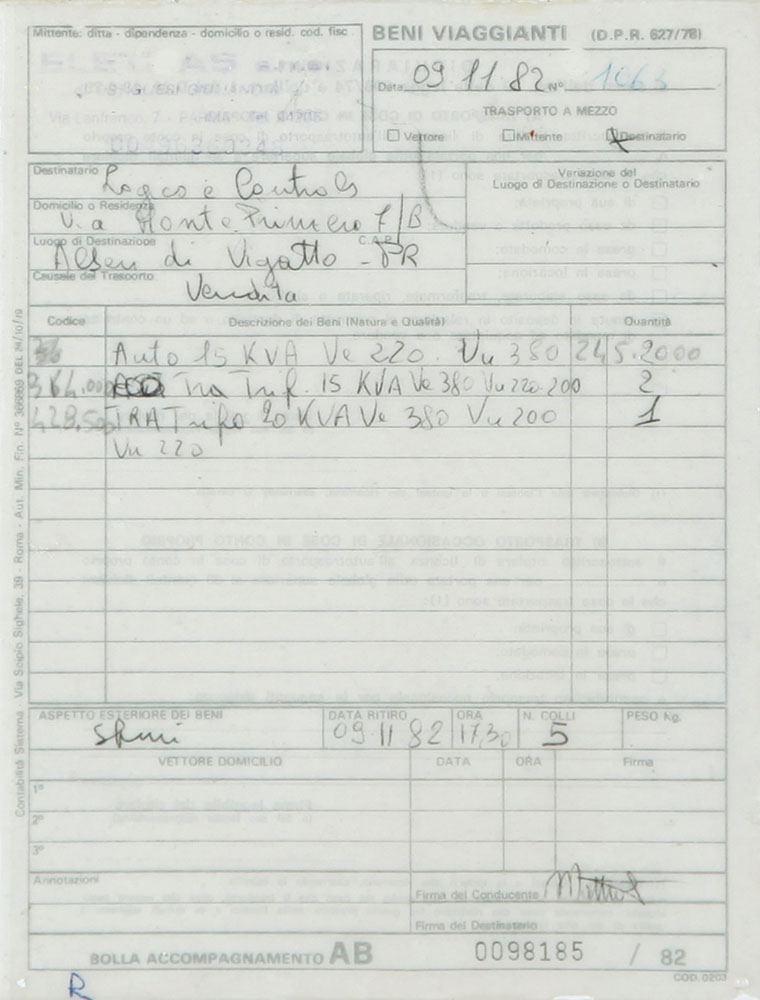 Mittente: ditta - dipendenza - domicilio o resid. cod. fisc.
BENI VIAGGIANTI (D.P.R. 627/78)
Data 09 11 82 N° 1063
TRASPORTO A MEZZO
Vettore Mittente Destinatario
Destinatario Logco e Controls
Domicilio o Residenza
Via Monte Primiero 7/B
Luogo di Destinazione C.A.P.
di Vigatto - PR
Causale del Trasporto
Vendita
Variazione del
Luogo di Destinazione o Destinatario
Codice Descrizione dei Beni (Natura e Qualità) Quantità
Auto 15 KVA Ve 220. Vu 380 245.2000
364.000 Tra Trif. 15 KVA Ve 380 Vu 220-200 2
428.500 TRA Trifo 20 KVA Ve 380 Vu 200 1
Vu 220
ASPETTO ESTERIORE DEI BENI DATA RITIRO ORA N. COLLI PESO Kg.
Sfusi 09 11 82 17,30 5
VETTORE DOMICILIO DATA ORA Firma
1°
2°
3°
Annotazioni
Firma del Conducente
Firma del Destinatario
BOLLA ACCOMPAGNAMENTO AB 0098185 / 82
COD. 0203
R
Contabilità Sistema - Via Scipio Sighele, 39 - Roma - Aut. Min. Fin. N° 366869 DEL 24/10/79